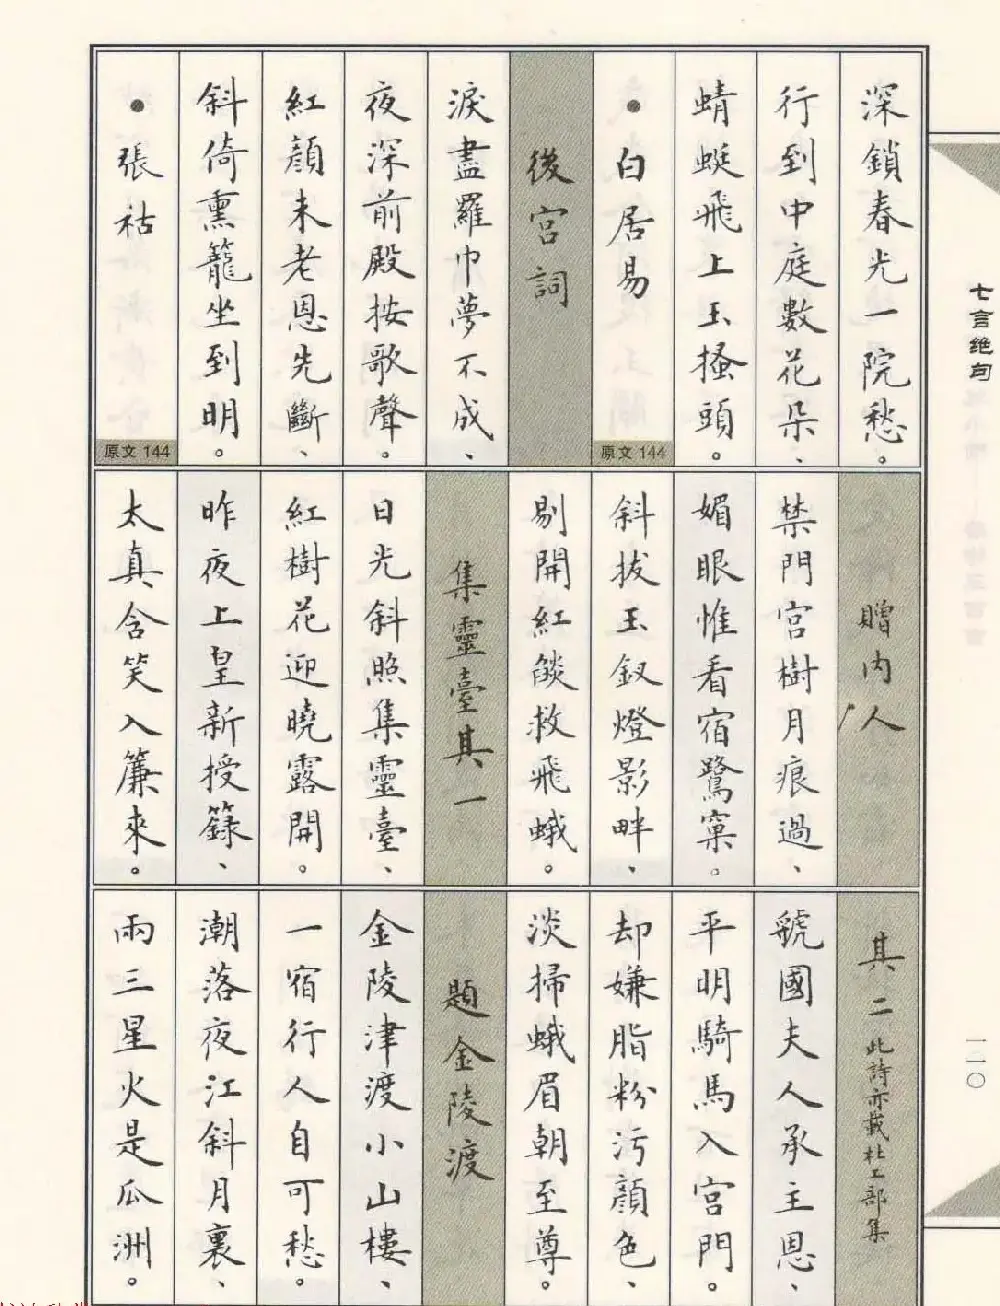 深鎖春光一院愁。
行到中庭數花朵、
蜻蜓飛上玉搔頭。
●白居易
原文 144
後宮詞
淚盡羅巾夢不成、
夜深前殿按歌聲。
紅顏未老恩先斷、
斜倚熏籠坐到明。
●張祜
原文 144
贈内人
禁門宮樹月痕過、
媚眼惟看宿鷺窠。
斜拔玉釵燈影畔、
剔開紅燄救飛蛾。
集靈臺其一
日光斜照集靈臺、
紅樹花迎曉露開。
昨夜上皇新授籙、
太真含笑入簾來。
其二 此詩亦載杜工部集
虢國夫人承主恩、
平明騎馬入宮門。
却嫌脂粉污顏色、
淡掃蛾眉朝至尊。
題金陵渡
金陵津渡小山樓、
一宿行人自可愁。
潮落夜江斜月裏、
兩三星火是瓜洲。
七言绝句
一一〇